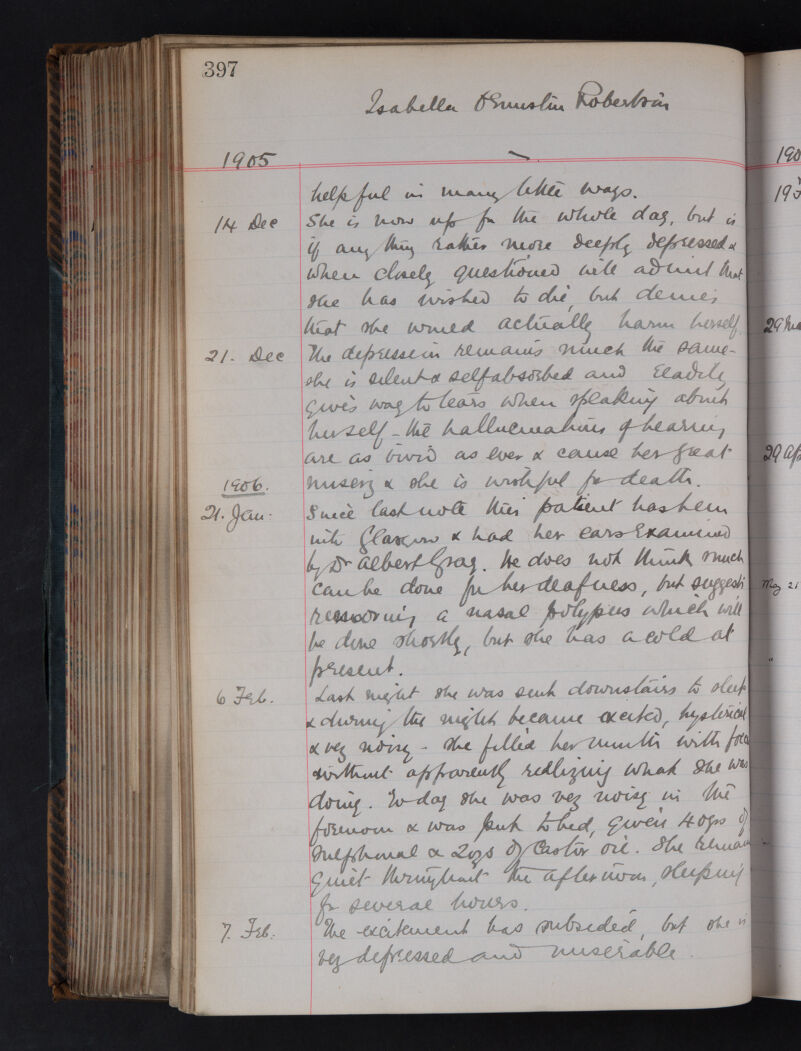 397
Isabella Robertson
1905
helpful in many little ways.
14 Dec She is now up for the whole day, but is
if any thing rather more deeply depressed &
when closely questioned will admit that
she has wished to die, but denies
that she would actually harm herself.
21. Dec The depression remains much the same -
she is silent & selfabsorbed and readily
gives way to tears when speaking about
herself - the hallucinations of hearing
are as vivid as ever & cause her great
1906. misery & she is wishful for death.
21. Jan. Since last note this patient has been
into Glasgow & had her ears examined
by Dr Albert Gray. He does not think much
can be done for her deafness, but suggests
removing a nasal polypus which will
be done shortly, but she has a cold at
present.
6 Feb. Last night she was sent downstairs to sleep
& during the night became excited, hysterical
& very noisy - she filled her mouth with food
without apparently realizing what she was
doing. To day she was very noisy in the
forenoon & was put to bed, given 40grs of
Sulphonal & 2ozs of Castor oil. She remained
quiet throughout the afternoon, sleeping
for several hours.
7. Feb. The excitement has subsided, but she is
very depressed and miserable.
190
29 Ma
29 Ap
May 21